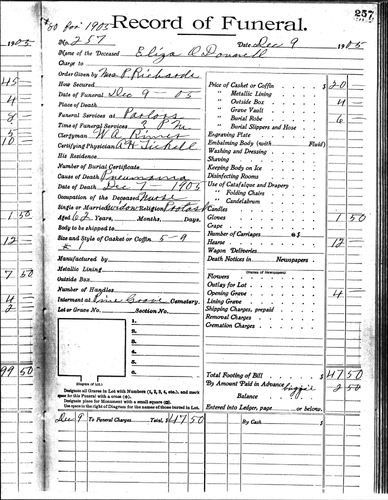 257
for 1905
Record of Funeral.
1905
No. 257
Date Dec 9 1905
Name of the Deceased Eliza O Donnell
Charge to
Order Given by Mrs. P. Richards
How Secured
Date of Funeral Dec 9 - 05
Place of Death
Funeral Services at Parlors
Time of Funeral Services 2 P.M.
Clergyman W.A.
Certifying Physician A H
His Residence
Number of Burial Certificate
Cause of Death Pneumonia
Date of Death Dec 7 - 1905
Occupation of the Deceased Nurse
Single or Married widow Religion Protest
Aged 62 Years, Months, Days.
Body to be shipped to
Size and Style of Casket or Coffin 5-9
# 1
Manufactured by
Metallic Lining
Outside Box
Number of Handles
Interment at Pine Grove Cemetery.
Lot or Grave No. Section No.
1.
2.
3.
4.
5.
6.
(Diagram of Lot.)
Designate all Graves in Lot with Numbers (1, 2, 3, 4, etc.), and mark
space for this Funeral with a cross (+).
Designate place for Monument with a small square (□).
Use space to the right of Diagram for the names of those buried in Lot.
Price of Casket or Coffin $ 20 —
" Metallic Lining
" Outside Box 4 —
" Grave Vault
" Burial Robe 6 —
" Burial Slippers and Hose
Engraving Plate
Embalming Body (with Fluid)
Washing and Dressing
Shaving
Keeping Body on Ice
Disinfecting Rooms
Use of Catafalque and Drapery
" Folding Chairs
" Candelabrum
Candles
Gloves 1 50
Crape
Number of Carriages @ $
Hearse 12 —
Wagon Deliveries
Death Notices in Newspapers
(Names of Newspapers)
Flowers
Outlay for Lot
Opening Grave 4 —
Lining Grave
Shipping Charges, prepaid
Removal Charges
Cremation Charges
Total Footing of Bill $ 47 50
By Amount Paid in Advance 2 50
Balance
Entered into Ledger, page or below.
Dec 9 To Funeral Charges Total, $ 47 50
By Cash $
45
4
8
5
10
1 50
12
7 50
4
2
99 50